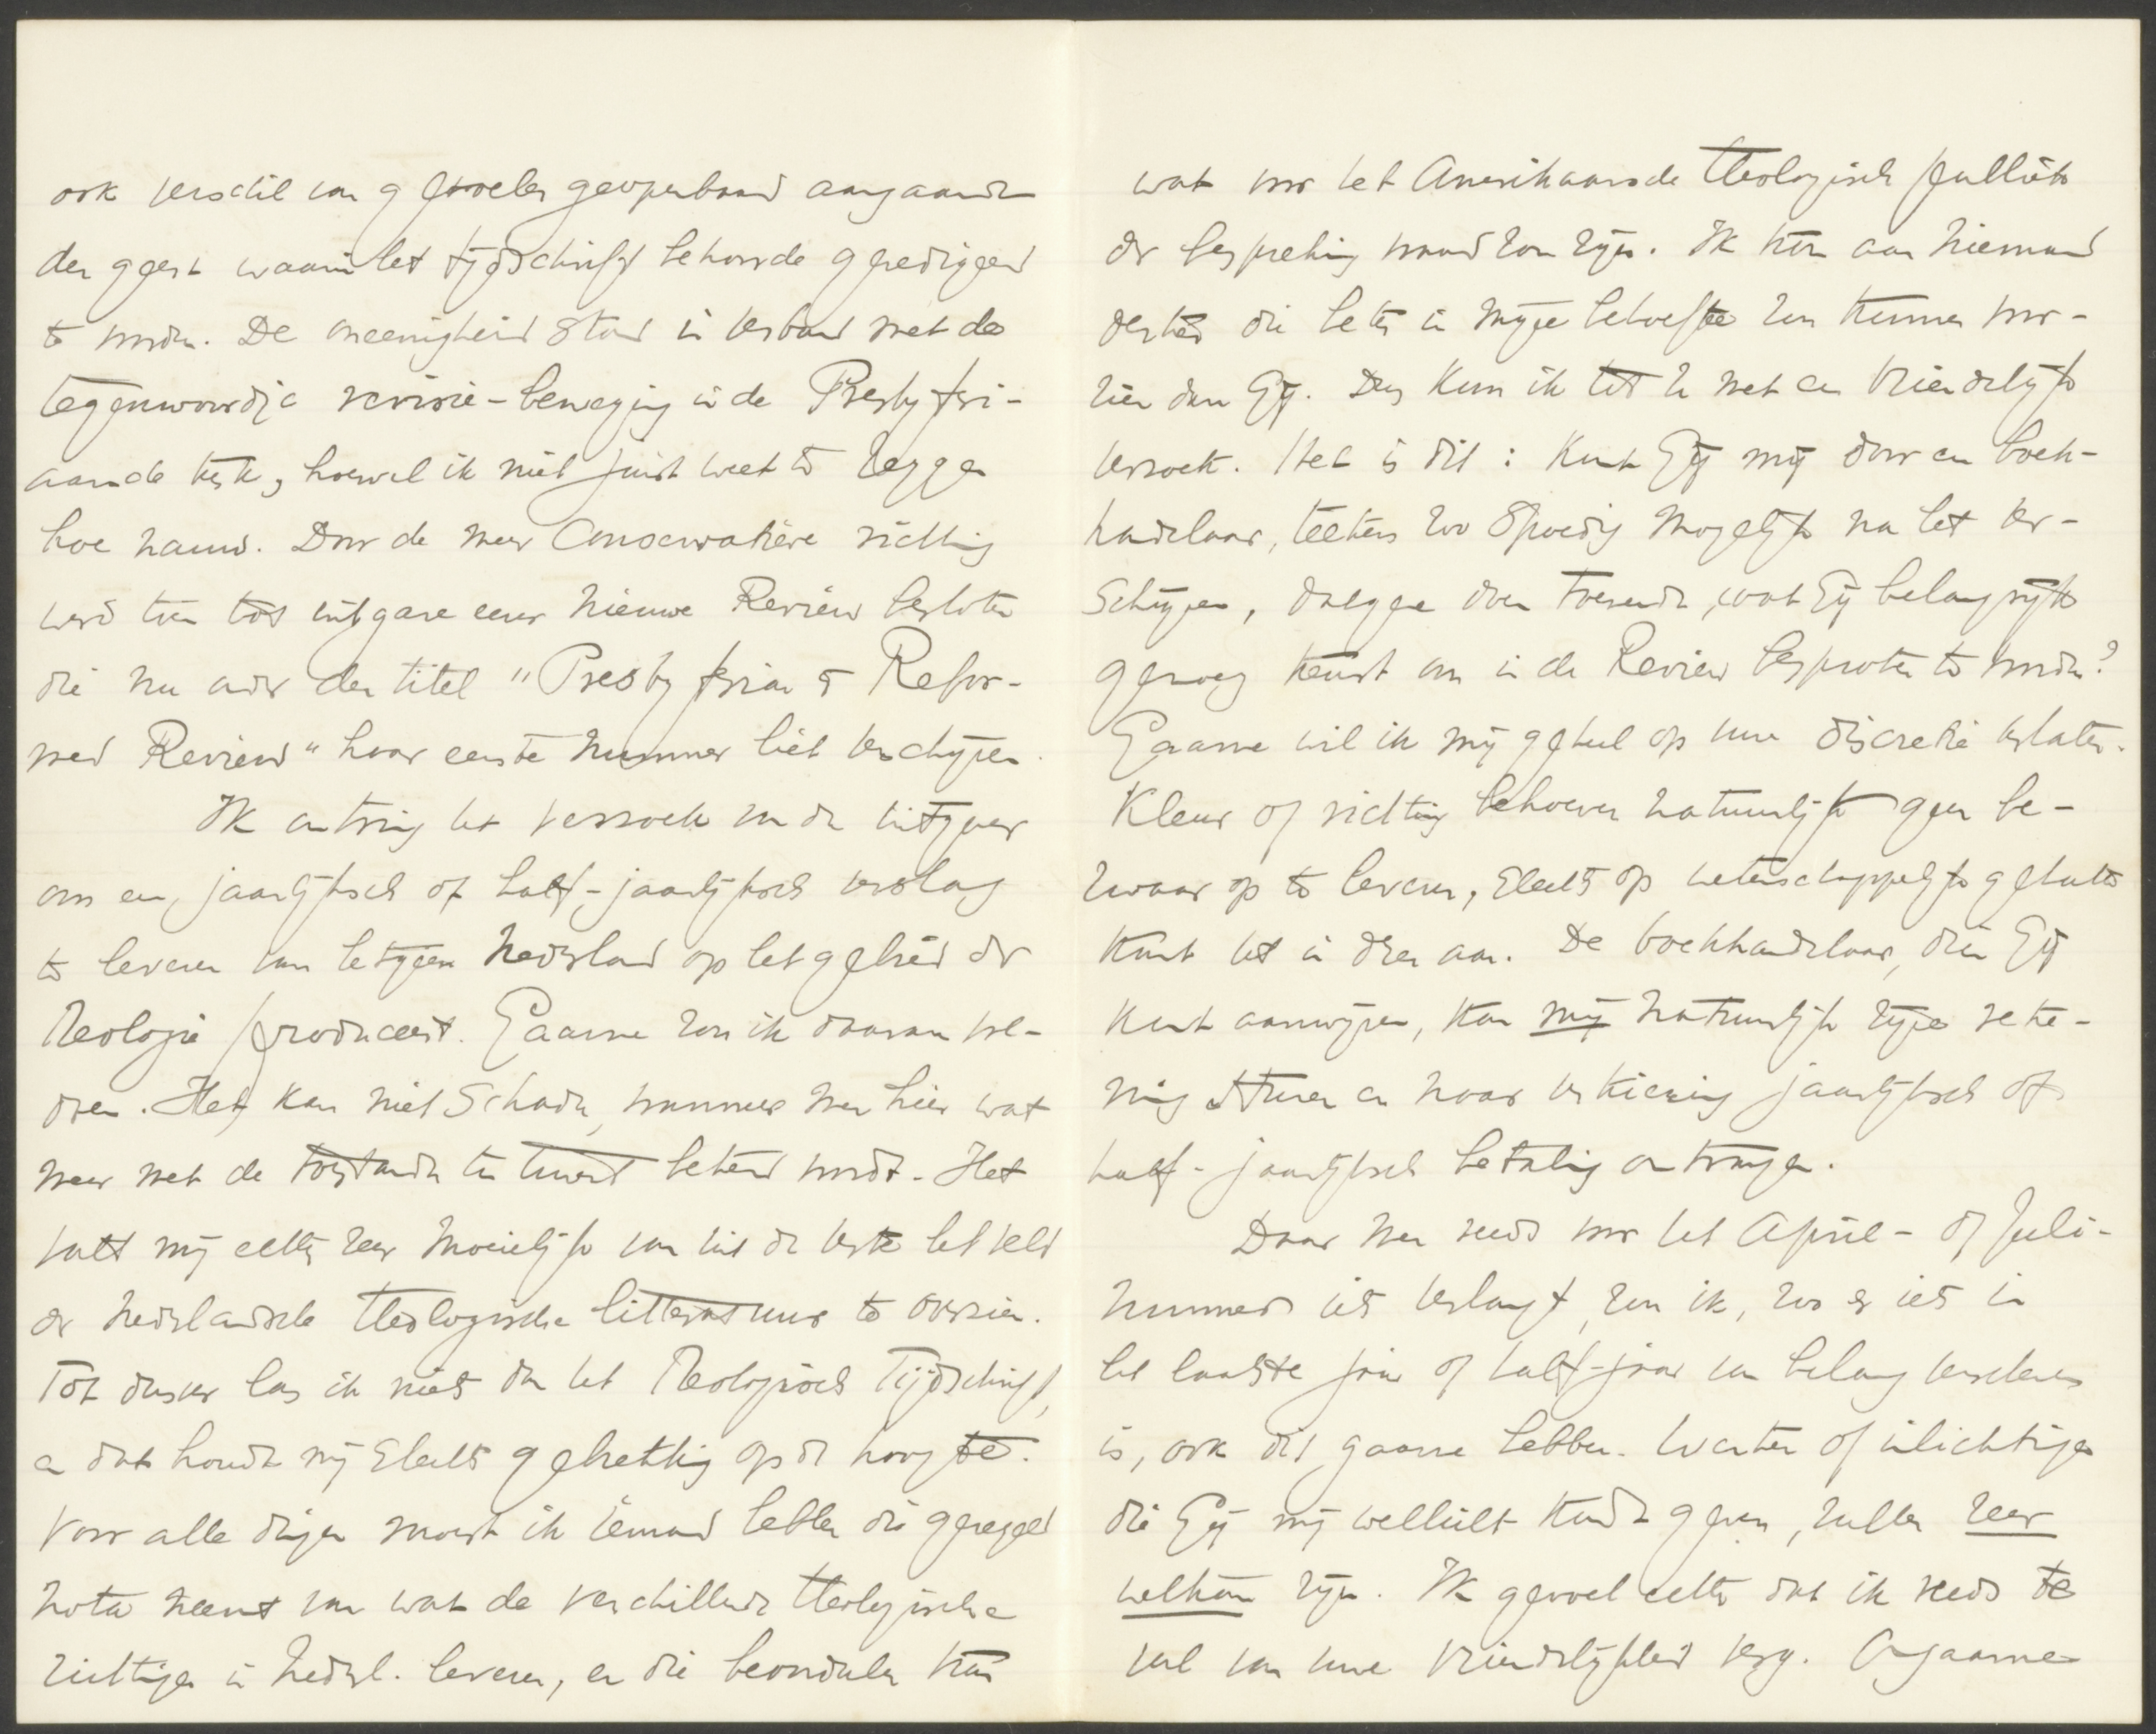 ook verschil van gevoelen geopenbaard aangaande
den geest waarin het tijdschrift behoorde geredigeerd
te worden. De oneenigheid stond in verband met de
tegenwoordige revisie-beweging in de Presbyteri-
aansche kerk, hoewel ik niet juist weet te zeggen
hoe nauw. Door de meer Conservatieve richting
werd toen tot uitgave eener nieuwe Review besloten
die nu onder den titel "Presbyterian & Refor-
med Review" haar eerste nummer liet verschijnen.
Ik ontving het verzoek van den uitgever
om een jaarlijksch of half-jaarlijksch verslag
te leveren van hetgeen Nederland op het gebied der
Theologie produceert. Gaarne zou ik daaraan vol-
doen. Het kan niet schaden, wanneer men hier wat
meer met de toestanden ten onzent bekend wordt. Het
valt mij echter zeer moeielijk van uit de verte het veld
der Nederlandsche theologische litteratuur te overzien.
Tot dusver las ik niets dan het Theologisch Tijdschrift,
en dat houdt mij slechts gebrekkig op de hoogte.
Voor alle dingen moest ik iemand hebben die geregeld
nota neemt van wat de verschillende theologische
richtingen in Nederl. leveren, en die beoordeelen kan
wat voor het Amerikaansche theologisch publiek
der bespreking waard zou zijn. Ik ken aan niemand
denken die beter in mijne behoefte zou kunnen voor-
zien dan Gij. Dus kom ik tot U met een vriendelijk
verzoek. Het is dit: Kunt Gij mij door een boek-
handelaar, telkens zoo spoedig mogelijk na het ver-
schijnen, datgene doen toezenden, wat Gij belangrijk
genoeg keurt om in de Review besproken te worden?
Gaarne wil ik mij geheel op uwe discretie verlaten.
Kleur of richting behoeven natuurlijk geen be-
zwaar op te leveren, slechts op wetenschappelijk gehalte
komt het in dezen aan. De boekhandelaar, dien Gij
kunt aanwijzen, kan mij natuurlijk zijne reke-
ning sturen en naar verkiezing jaarlijksch of
half-jaarlijksch betaling ontvangen.
Daar men reeds voor het April- of Juli-
nummer iets verlangt, zou ik, zoo er iets in
het laatste jaar of half-jaar van belang verschenen
is, ook dit gaarne hebben. Wenken of inlichtingen
die Gij mij wellicht kondt geven, zullen zeer
welkom zijn. Ik gevoel echter dat ik reeds te
veel van uwe vriendelijkheid verg. Ongaarne